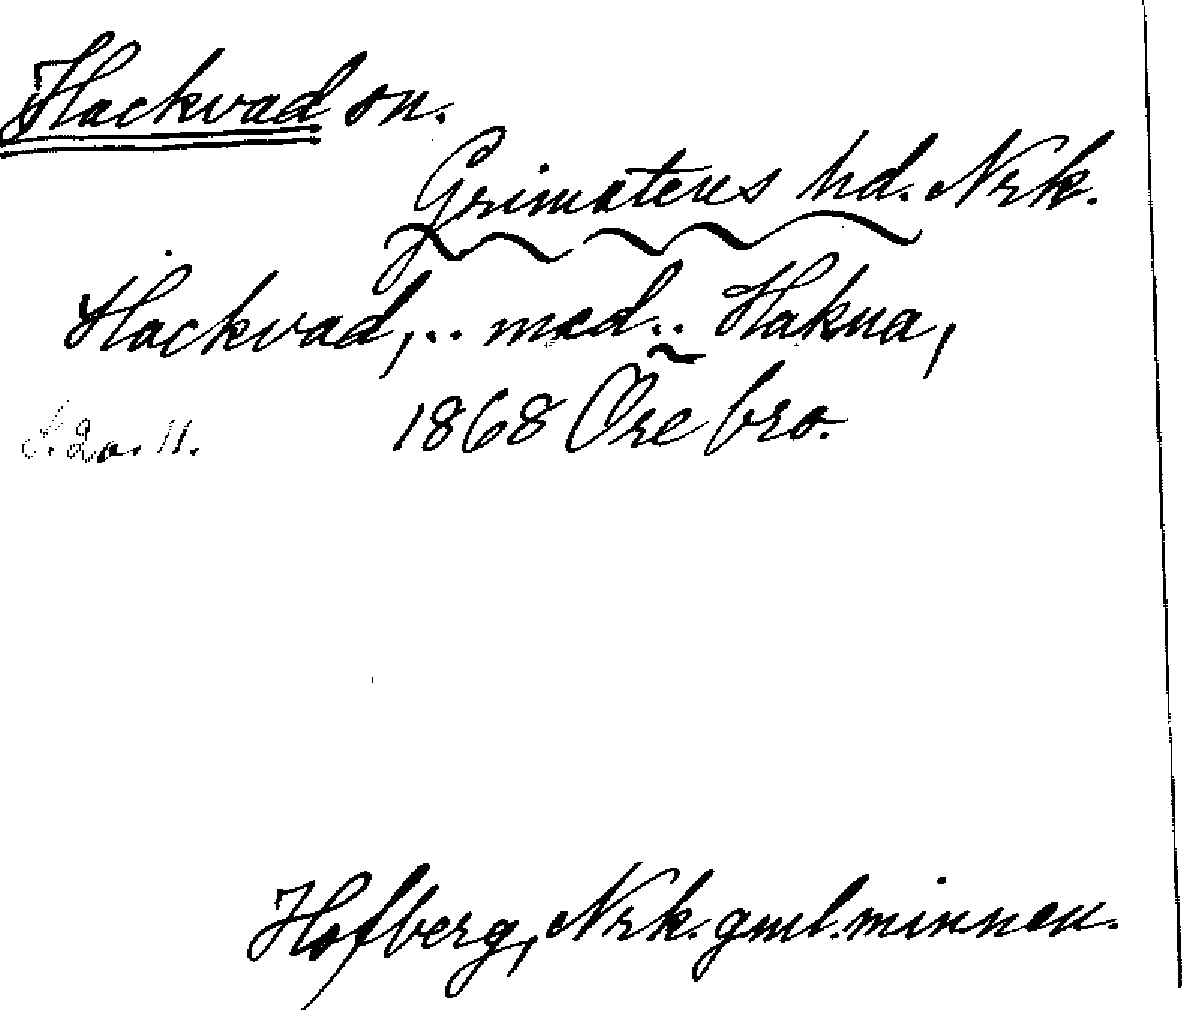 Hackvad sn.
Grimstens hd. Nrk.
Hackvad, .. med .. Hakua,
1868 Örebro.
S. 20. 11.
Hofberg, Nrk. gml. minnen.